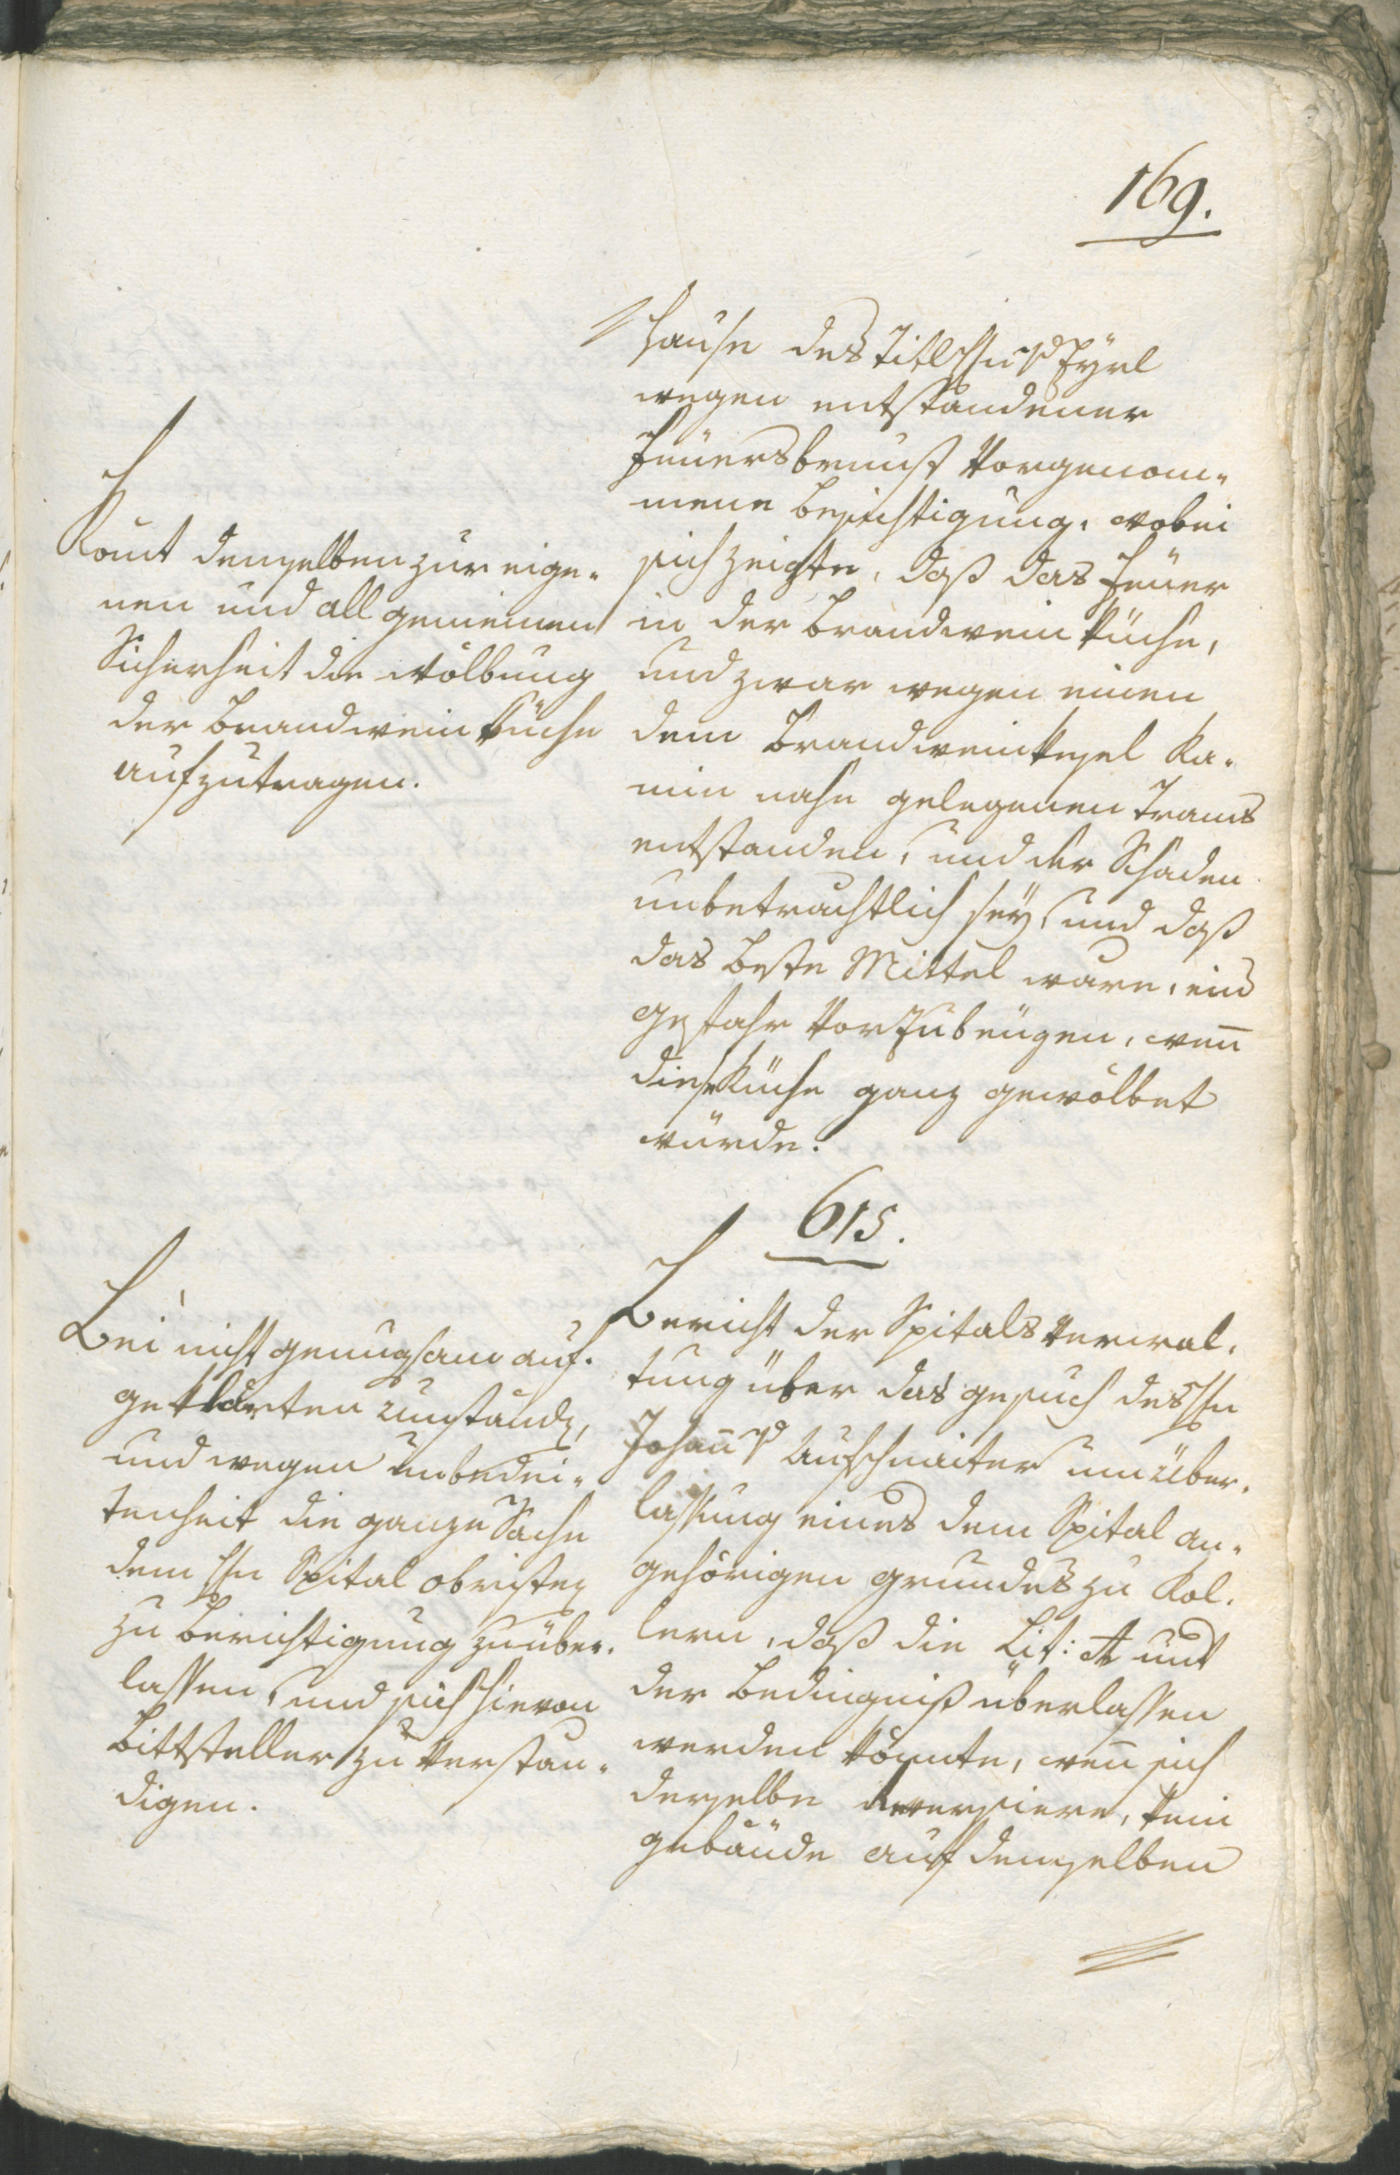 169.
Hause des Titl Hn v Eyrl
wegen entstandener
Feuersbrunst Vorgenom-
mene besichtigung, wobei
sich zeigte, daß das Feuer
in der Brandwein küche,
und zwar wegen einen
dem Brandweinkeßel Ka-
min nahe gelegenen Trams
entstanden, und der Schaden
unbetrachtlich sey, und daß
das beste Mittel ware, eine
gefahr Vorzubeugen, wen̄
diese Küche ganz gewölbet
würde.
Komt demselben zur eige-
nen und allgemeinen
Sicherheit die wölbung
der Brandwein küche
aufzutragen.
615.
Bericht der Spitals verwal-
tung über das gesuch des Hn
Johan̄ v Aufschnaiter um über-
lassung eines dem Spital an-
gehörigen grundes zu Kol-
lern, daß die Lit: A und
der Bedingniß überlassen
werden könnte, wen̄ sich
derselbe reversiere, kein
gebäude auf demselben
Bei nicht genugsam auf-
geklärten umständen,
und wegen unbedei-
tenheit die ganze Sache
dem Hn Spital obristen
zu berichtigung zu über-
lassen, und sich hievon
Bittsteller zu verstän-
digen.